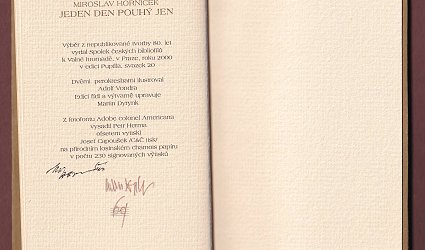 MIROSLAV HORNÍČEK
JEDEN DEN POUHÝ JEN
Výběr z nepublikované tvorby 80. let
vydal Spolek českých bibliofilů
k Valné hromadě, v Praze, roku 2000
v edici Pupilla, svazek 20
Dvěmi perokresbami ilustroval
Adolf Vondra
Edici řídí a výtvarně upravuje
Martin Dyrynk
Z fotofontu Adobe colonel Americana
vysadil Petr Herma
ofsetem vytiskl
Josef Ťapoušek
na přírodním losinském chamois papíru
v počtu 230 signovaných výtisků
69